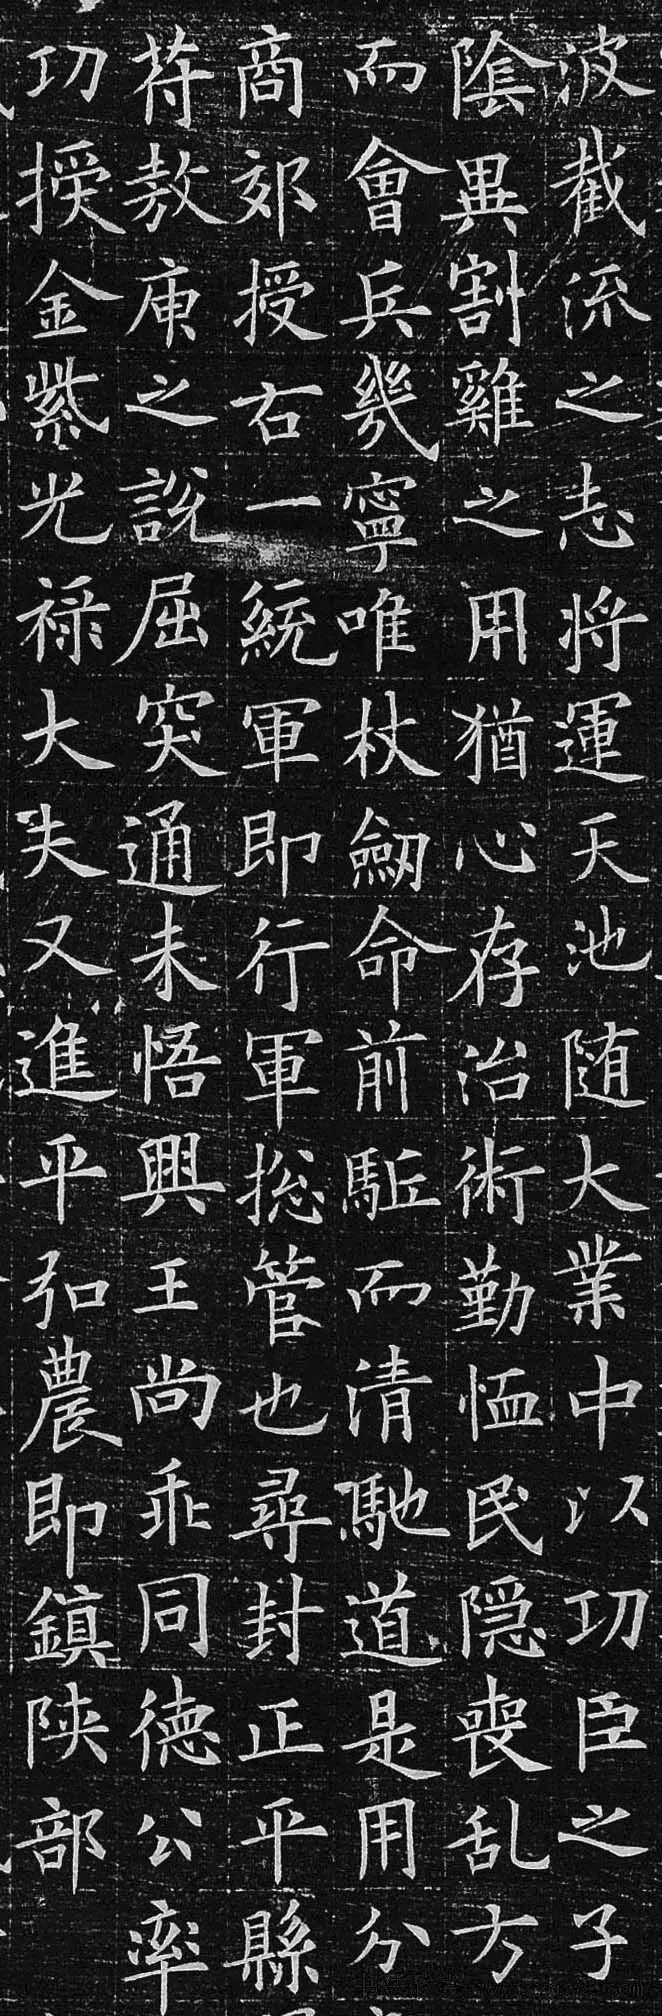 波截流之志将運天池随大業中以功臣之子
陰異割雞之用猶心存治術勤恤民隠喪乱方
而會兵幾寧唯杖劒命前駈而清馳道是用分
商郊授右一統軍即行軍揔管也尋封正平縣
苻敖庾之說屈突通未悟興王尚乖同德公率
功授金紫光禄大夫又進平弘農即鎮陝部